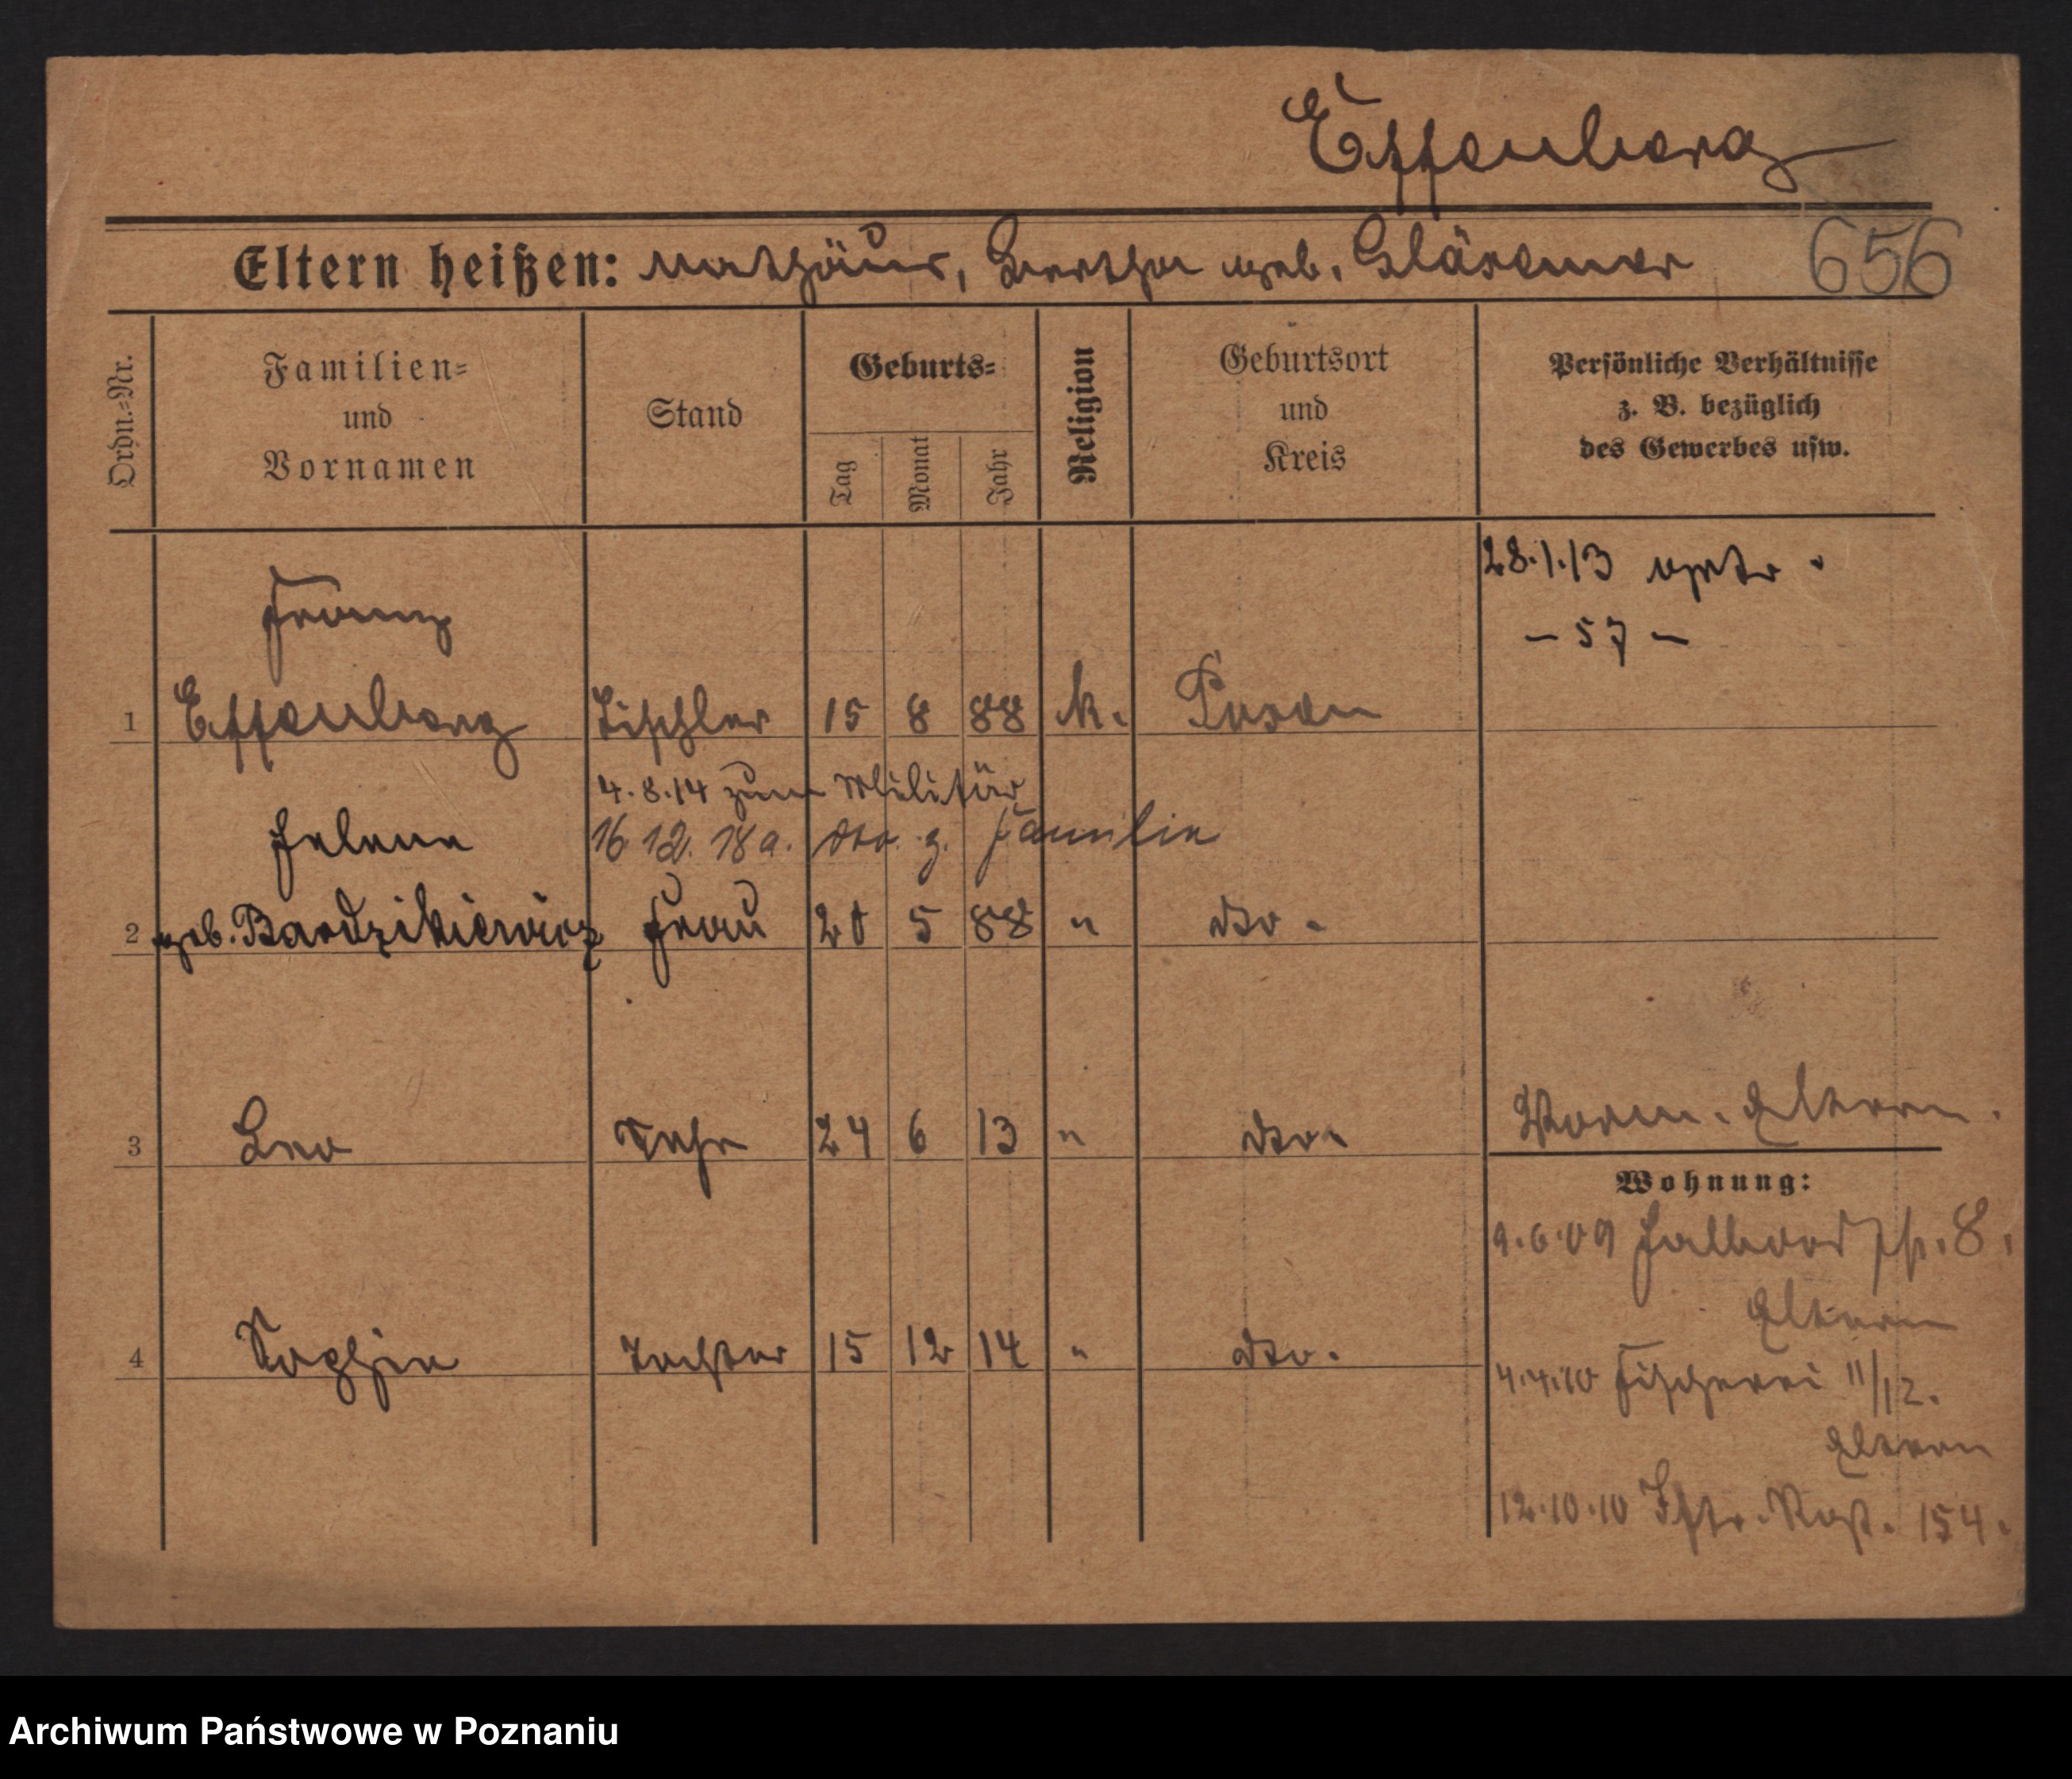 Effenberg
Eltern heißen: Mathäus, Bertha geb. Gläsemer
656
Ordn.=Nr.
Familien=
und
Vornamen
Stand
Geburts=
Tag
Monat
Jahr
Religion
Geburtsort
und
Kreis
Persönliche Verhältnisse
z. B. bezüglich
des Gewerbes usw.
28.1.13
– 57 –
Franz
1 Effenberg Tischler 15 8 88 k. Posen
4.8.14 zum Militär
16 12. 18 a. dto. z. Familie
Helene
2 geb. Bardzikiewicz Frau 20 5 88 " dto.
3 Leo Sohn 24 6 13 " dto.
Eltern.
Wohnung:
9.6.09 Halbdorfstr. 8.
Eltern
4 Sophie Tochter 15 12 14 " dto.
4.4.10 Fischerei 11/12.
Eltern
12.10.10 154.
Archiwum Państwowe w Poznaniu